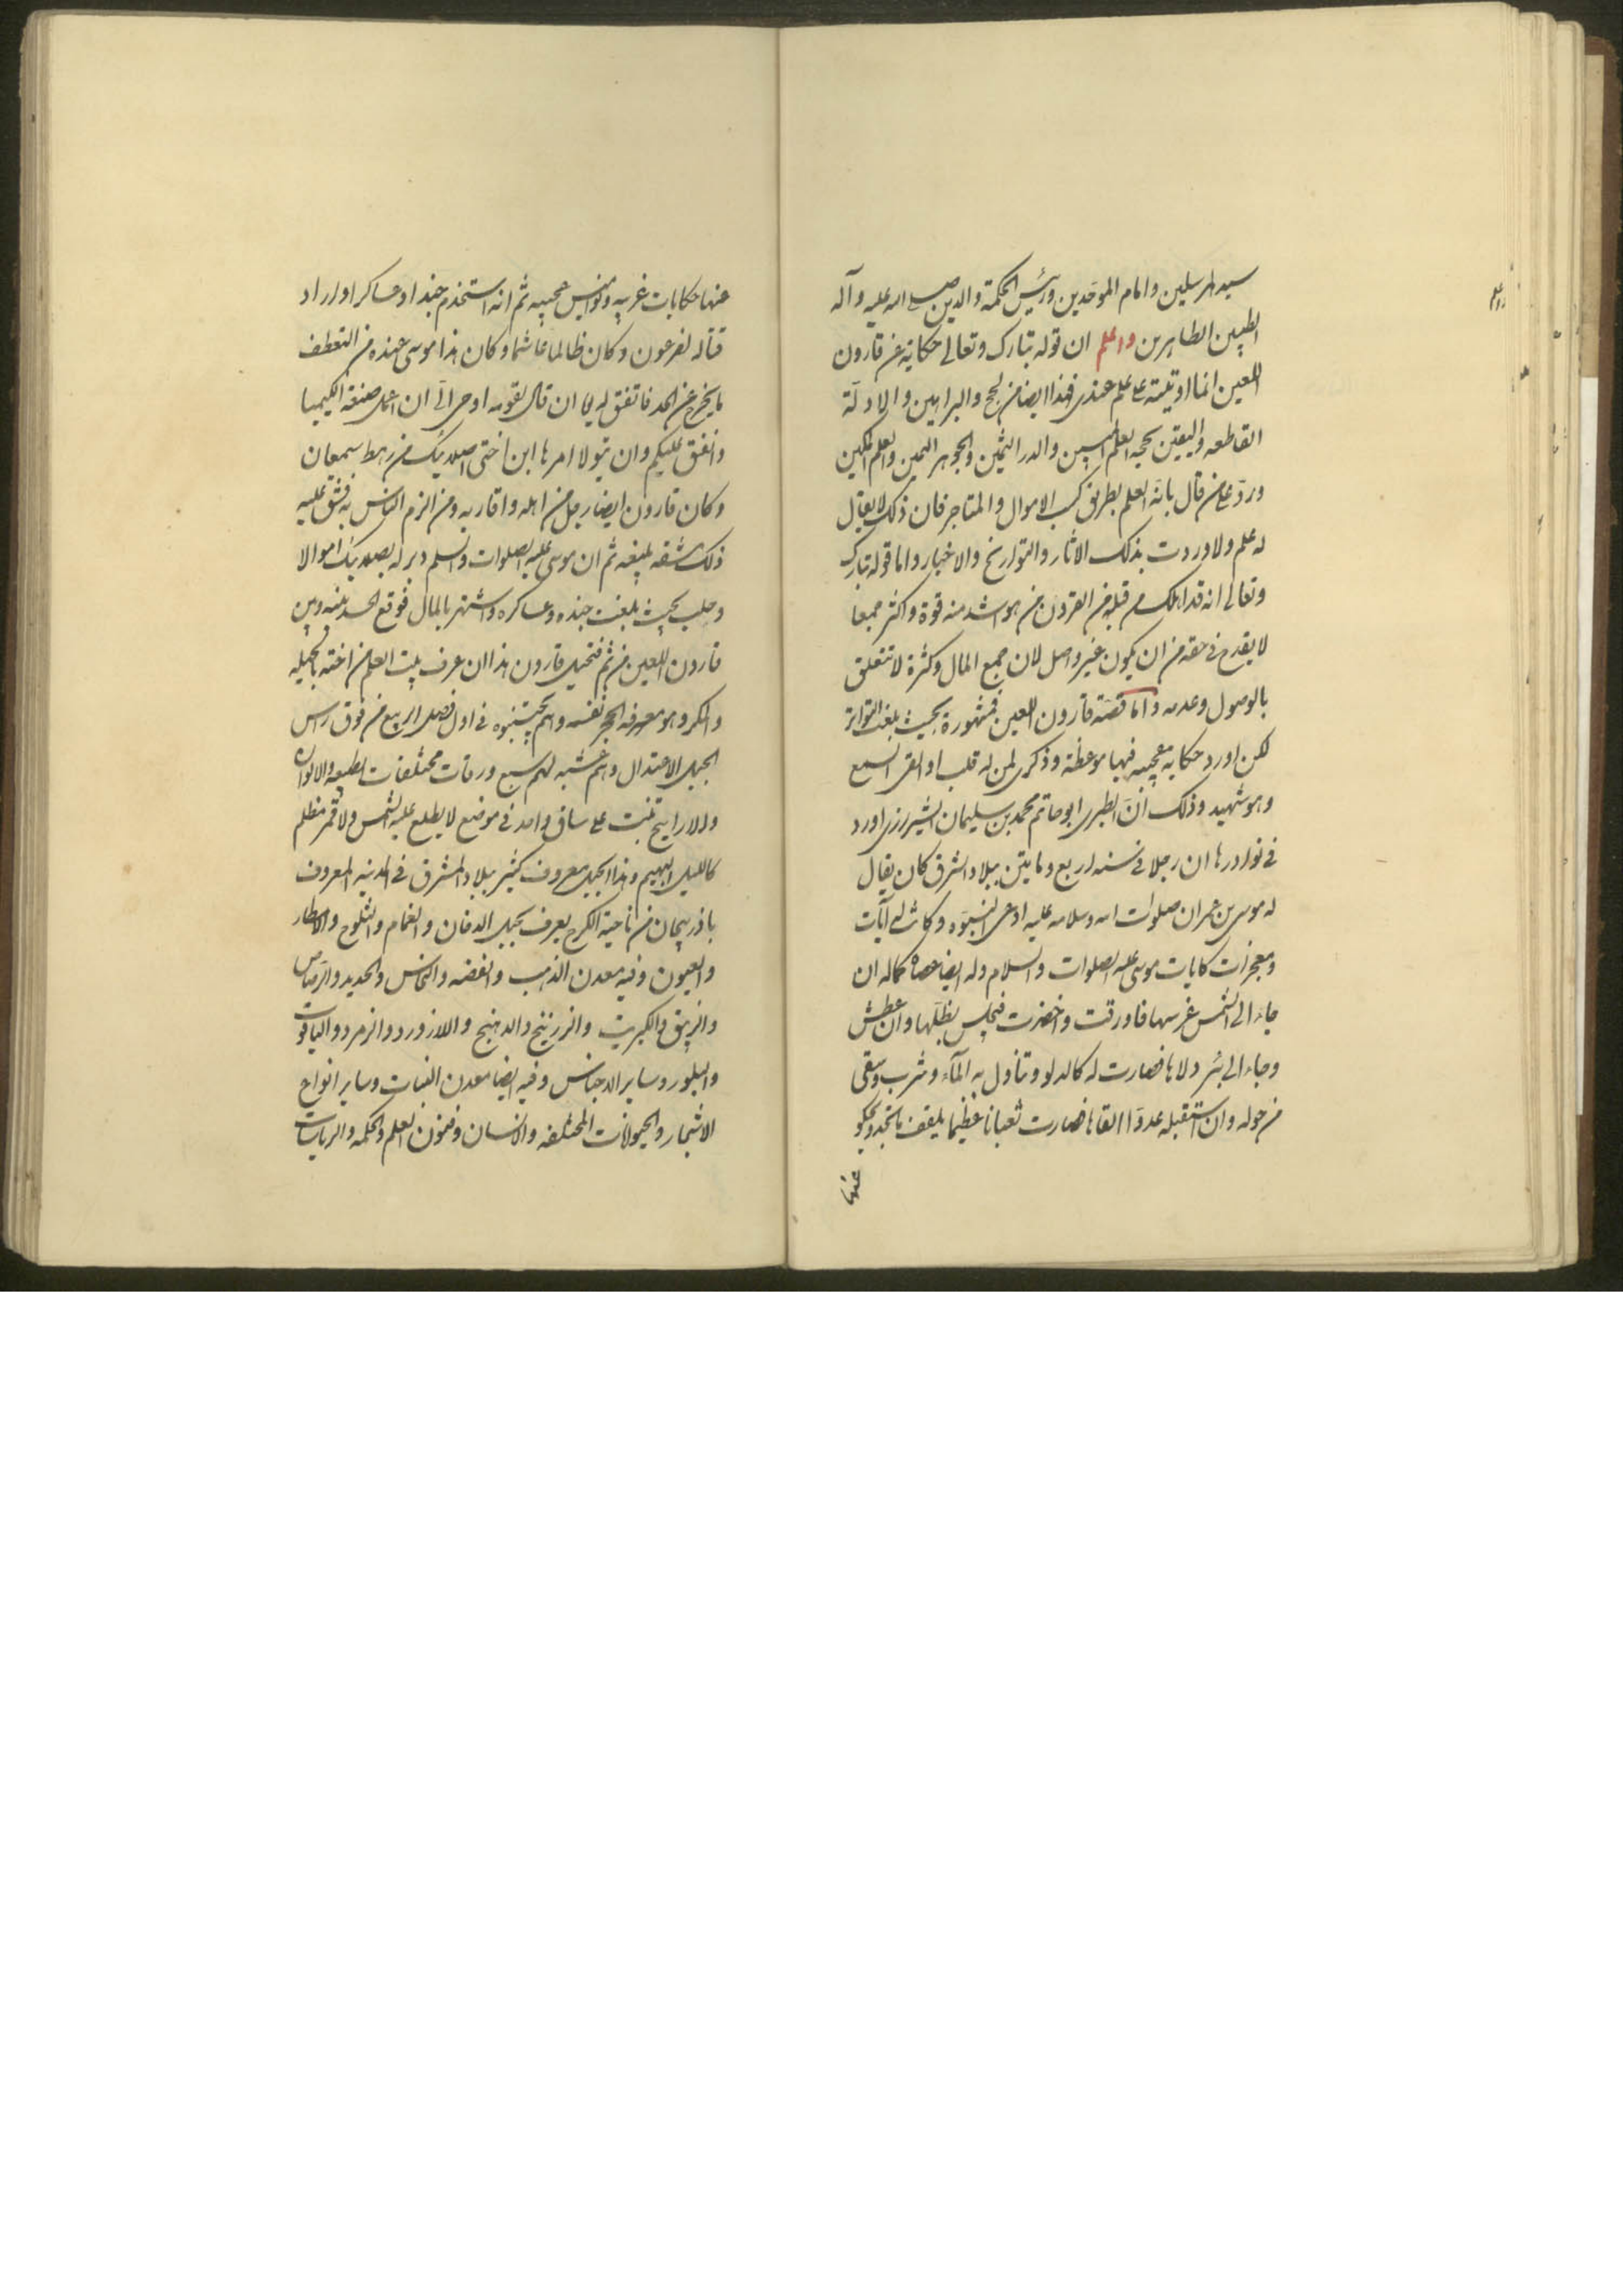 سيد المرسلين وامام الموحدين ورئيس الحكمة والدين صلى الله عليه وآله
الطيبين الطاهرين واعلم ان قوله تبارك وتعالى حكاية عن قارون
اللعين انما اوتيته على علم عندى فهذا ايضا من الحجج والبراهين والادلة
القاطعه واليقين بحجيه العلم المبين والدر الثمين والجوهر الثمين والعلم المكين
ورد على من قال بانه العلم بطريق كسب الاموال والمتاجر فان ذلك لا يقال
له علم ولا وردت بذلك الاثار والتواريخ والاخبار واما قوله تبارك
وتعالى انه قد اهلك من قبله من القرون من هو اشد منه قوة واكثر جمعا
لا يقدح فى حقه من ان يكون غير واصل لان جمع المال وكثرة لا تتعلق
بالوصول وعدمه واما قصة قارون اللعين فمشهورة بحيث بلغت التواتر
لكن اورد حكايه عجيبه فيها موعظة وذكرى لمن له قلب او القى السمع
وهو شهيد وذلك ان الطبرى ابو حاتم محمد بن سليمان الشيرزى اورد
فى نوادرها ان رجلا فى سنه اربع ومايتين ببلاد الشرق كان يقال
له موسى بن عمران صلوات الله وسلامه عليه ادعى النبوه وكانت له آيات
ومعجزات كايات موسى عليه الصلوات والسلام وله ايضا عصاه كماله ان
جاء الى الشمس غرسها فاورقت واخضرت فيجلس بظلها وان عطش
وجاء الى بئر دلاها فصارت له كالدلو وتناول به المآء وشرب وسقى
من حوله وان استقبله عدوا القاها فصارت ثعبانا عظيما يلقف ما تجد ويحكو
عنها
عنها حكايات غريبه ونواميس عجيبه ثم انه استخدم جندا وعساكر او اراد
قتاله لفرعون وكان ظالما غاشما وكان هذا موسى عنده من التعطف
ما يخرج عن الحد فاتفق له الى ان قال لقومه اوحى الى ان اعمل صنعة الكيميا
وانفق عليكم وان يتولا امرها ابن اختى من رهط سمعان
وكان قارون ايضا رجل من اهله واقاربه ومن الزم الناس به فشق عليه
ذلك مشقه بليغه ثم ان موسى عليه الصلوات والسلم دبر له اموالا
وجلب بحيث بلغت جنده وعساكره واشتهر بالمال فوقع الحسد بينه وبين
قارون اللعين من ثم فتحيل قارون هذا ان عرف بيت العلم من اخته بالحيله
والمكر وهو معرفه الحجر نفسه وانهم يجتنبوه فى اول فصل الربيع من فوق راس
الجبل الاعتدال وهم عشبه لهم سبع ورقات مختلفات الطبيعه والالوان
والارايح تنبت على ساق واحد فى موضع لا يطلع عليه الشمس ولا قمر مظلم
كالليل البهيم وهذا الجبل معروف كثير ببلاد المشرق فى المدينه المعروف
باذربيجان من ناحية الكرج يعرف بجبل الدخان والغمام والثلوج والامطار
والعيون وفيه معدن الذهب والفضه والنحاس والحديد والرصاص
والزيبق والكبريت والزرنيخ والدهنج واللازورد والزمرد والياقوت
والبلور وساير الاجناس وفيه ايضا معدن النبات وساير انواع
الاشجار والحيوانات المختلفه والانسان وفنون العلم والحكمه والرياسات